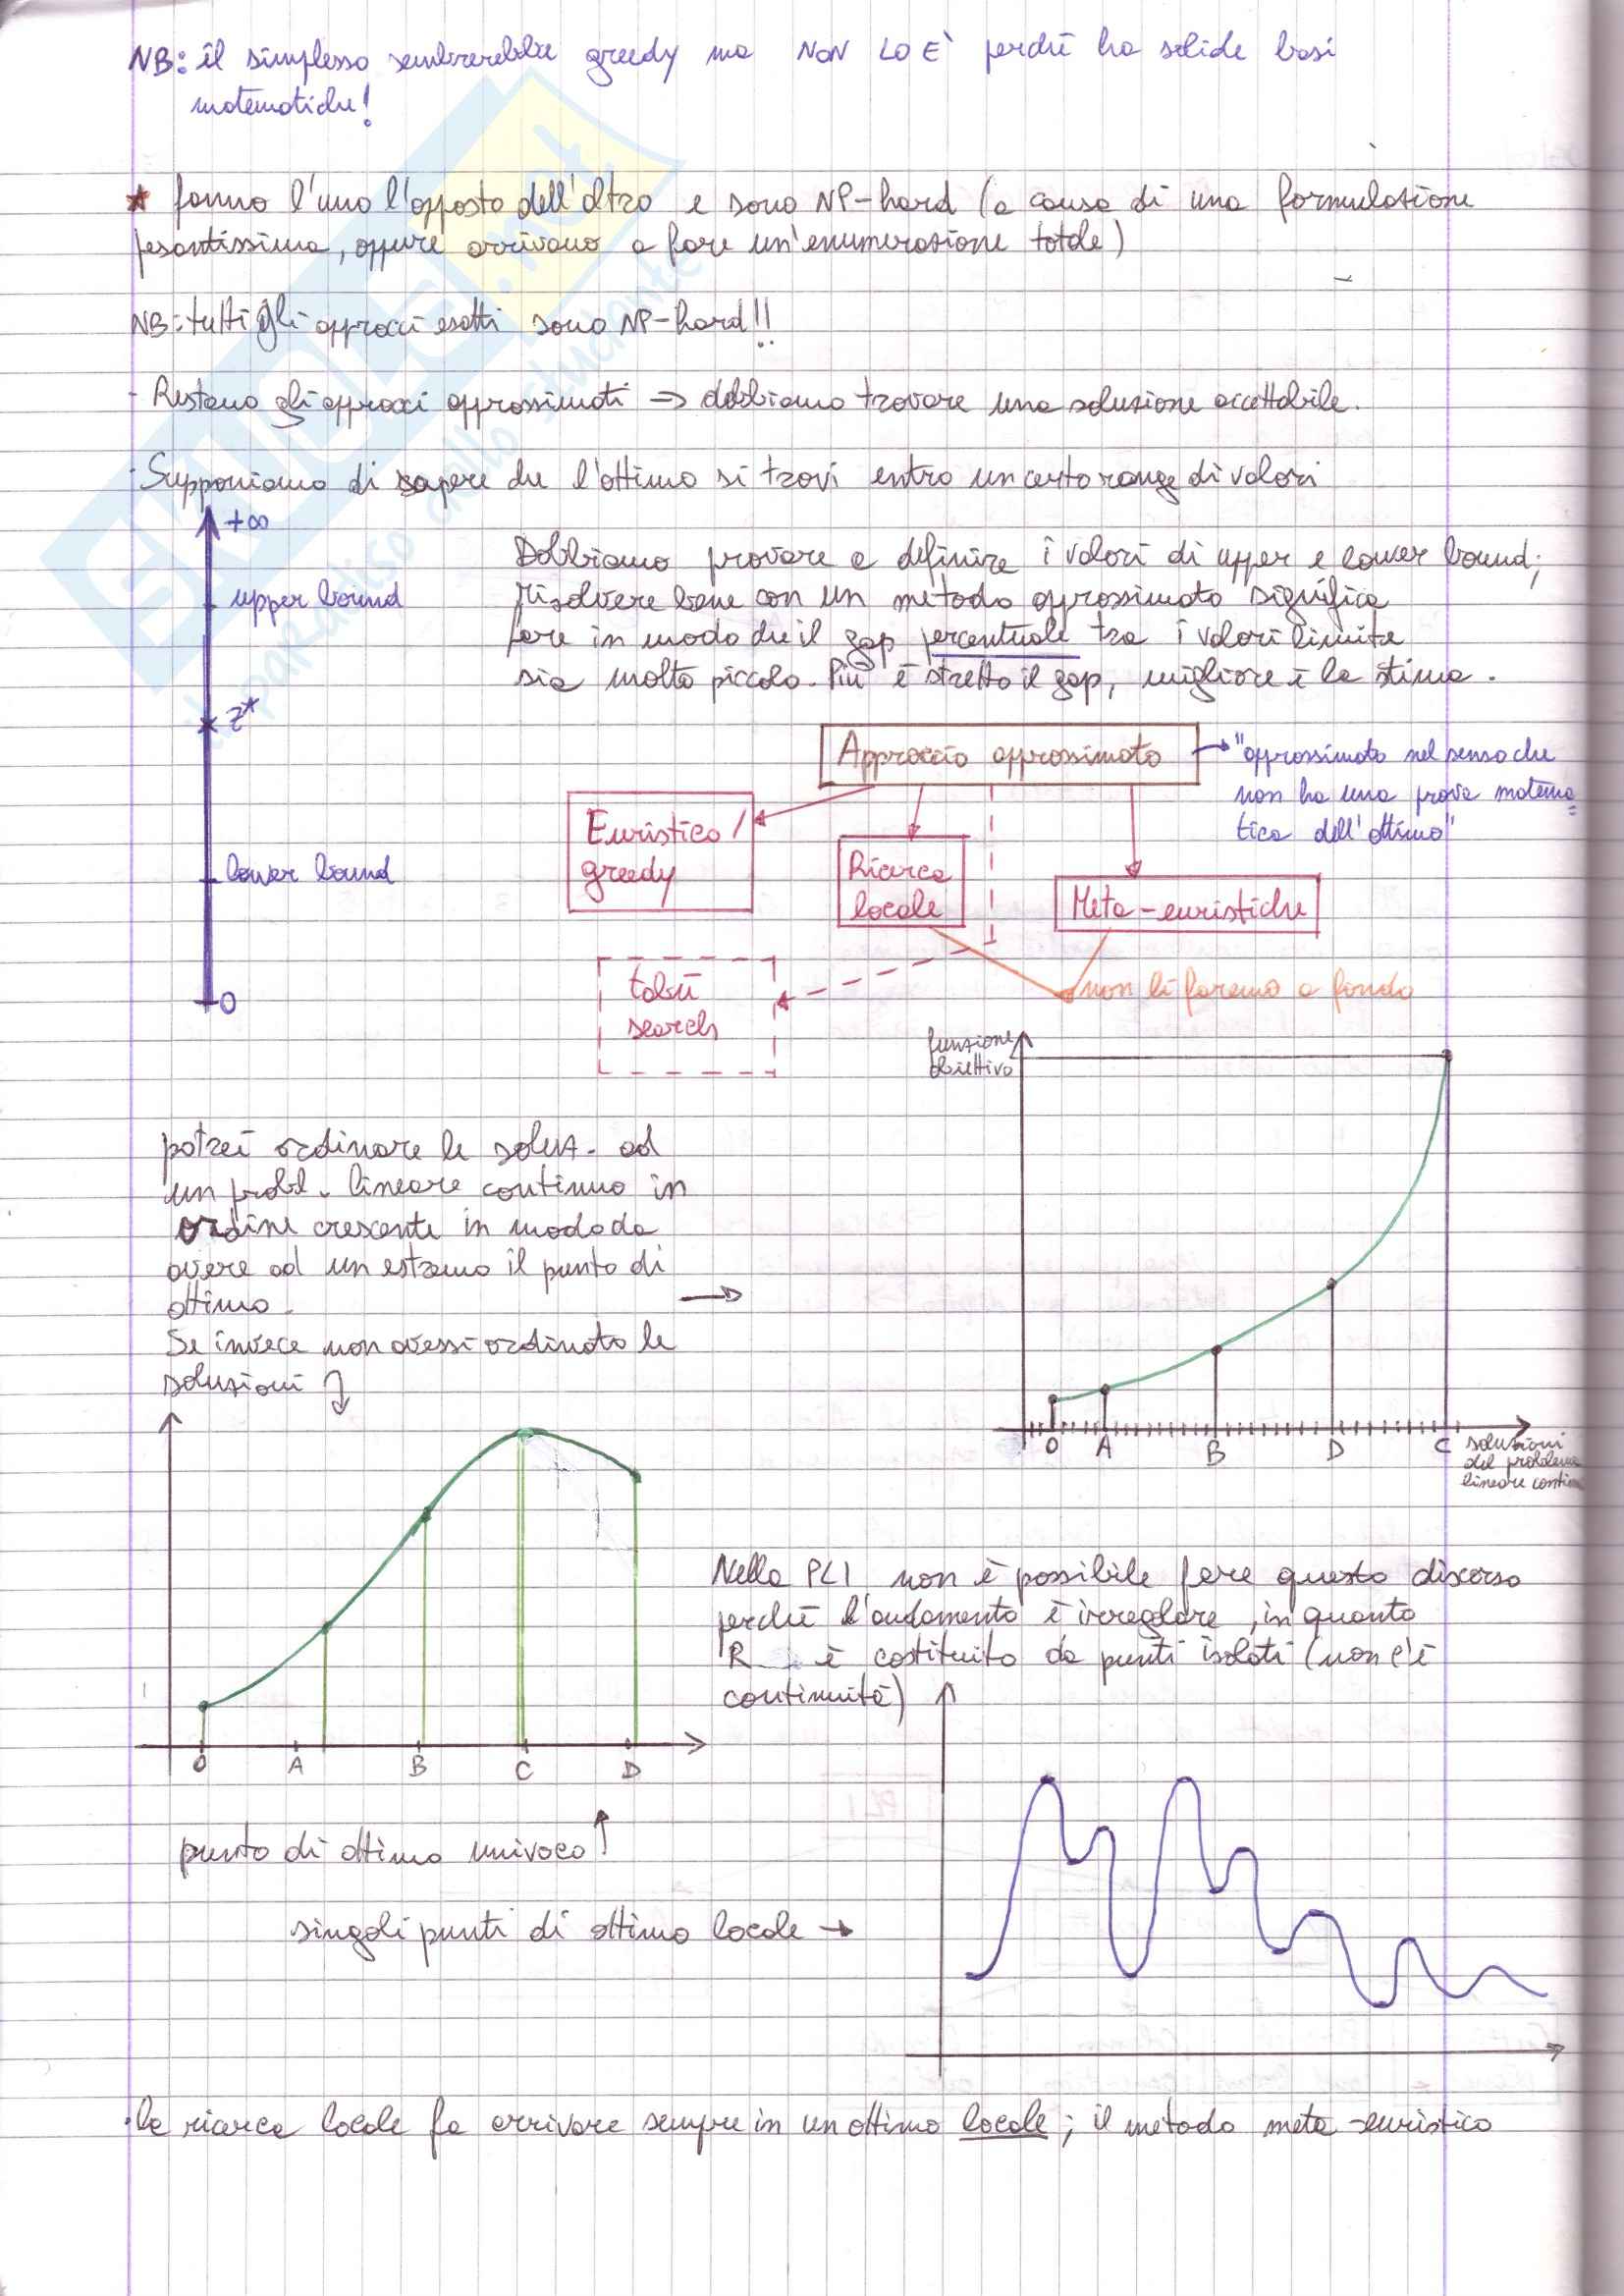 NB: il simplesso sembrerebbe greedy ma NON LO È perché ha solide basi
matematiche!
* fanno l'uno l'opposto dell'altro e sono NP-hard (a causa di una formulazione
pesantissima, oppure arrivano a fare un'enumerazione totale)
NB: tutti gli approcci esatti sono NP-hard!!
- Restano gli approcci approssimati => dobbiamo trovare una soluzione accettabile.
· Supponiamo di sapere che l'ottimo si trovi entro un certo range di valori
+∞
upper bound
z*
lower bound
0
Dobbiamo provare a definire i valori di upper e lower bound;
risolvere bene con un metodo approssimato significa
fare in modo che il gap percentuale tra i valori limite
sia molto piccolo. Più è stretto il gap, migliore è la stima.
Approccio approssimato
"approssimato nel senso che
non ha una prova matema=
tica dell'ottimo"
Euristico/
greedy
Ricerca
locale
Meta-euristiche
tabù
search
non li faremo a fondo
funzione
obiettivo
potrei ordinare le soluz. ad
un probl. lineare continuo in
ordine crescente in modo da
avere ad un estremo il punto di
ottimo.
Se invece non avessi ordinato le
soluzioni
O A B D C
soluzioni
del problema
lineare
O A B C D
Nella PLI non è possibile fare questo discorso
perché l'andamento è irregolare, in quanto
R è costituito da punti isolati (non c'è
continuità)
punto di ottimo univoco
singoli punti di ottimo locale →
· la ricerca locale fa arrivare sempre in un ottimo locale; il metodo meta-euristico
SKUOLA.net
il paradiso dello studente